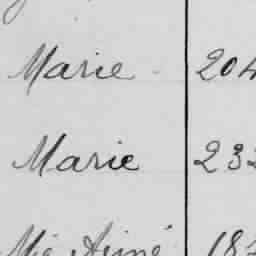 Marie 204
Marie 232
Mie Aimé 187